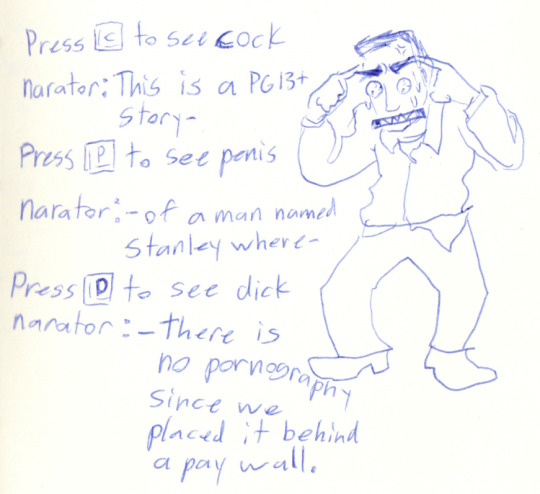 Press C to see cock
narator: This is a PG13+
story-
Press P to see penis
narator: -of a man named
Stanley where-
Press D to see dick
narator: -there is
no pornography
since we
placed it behind
a pay wall.